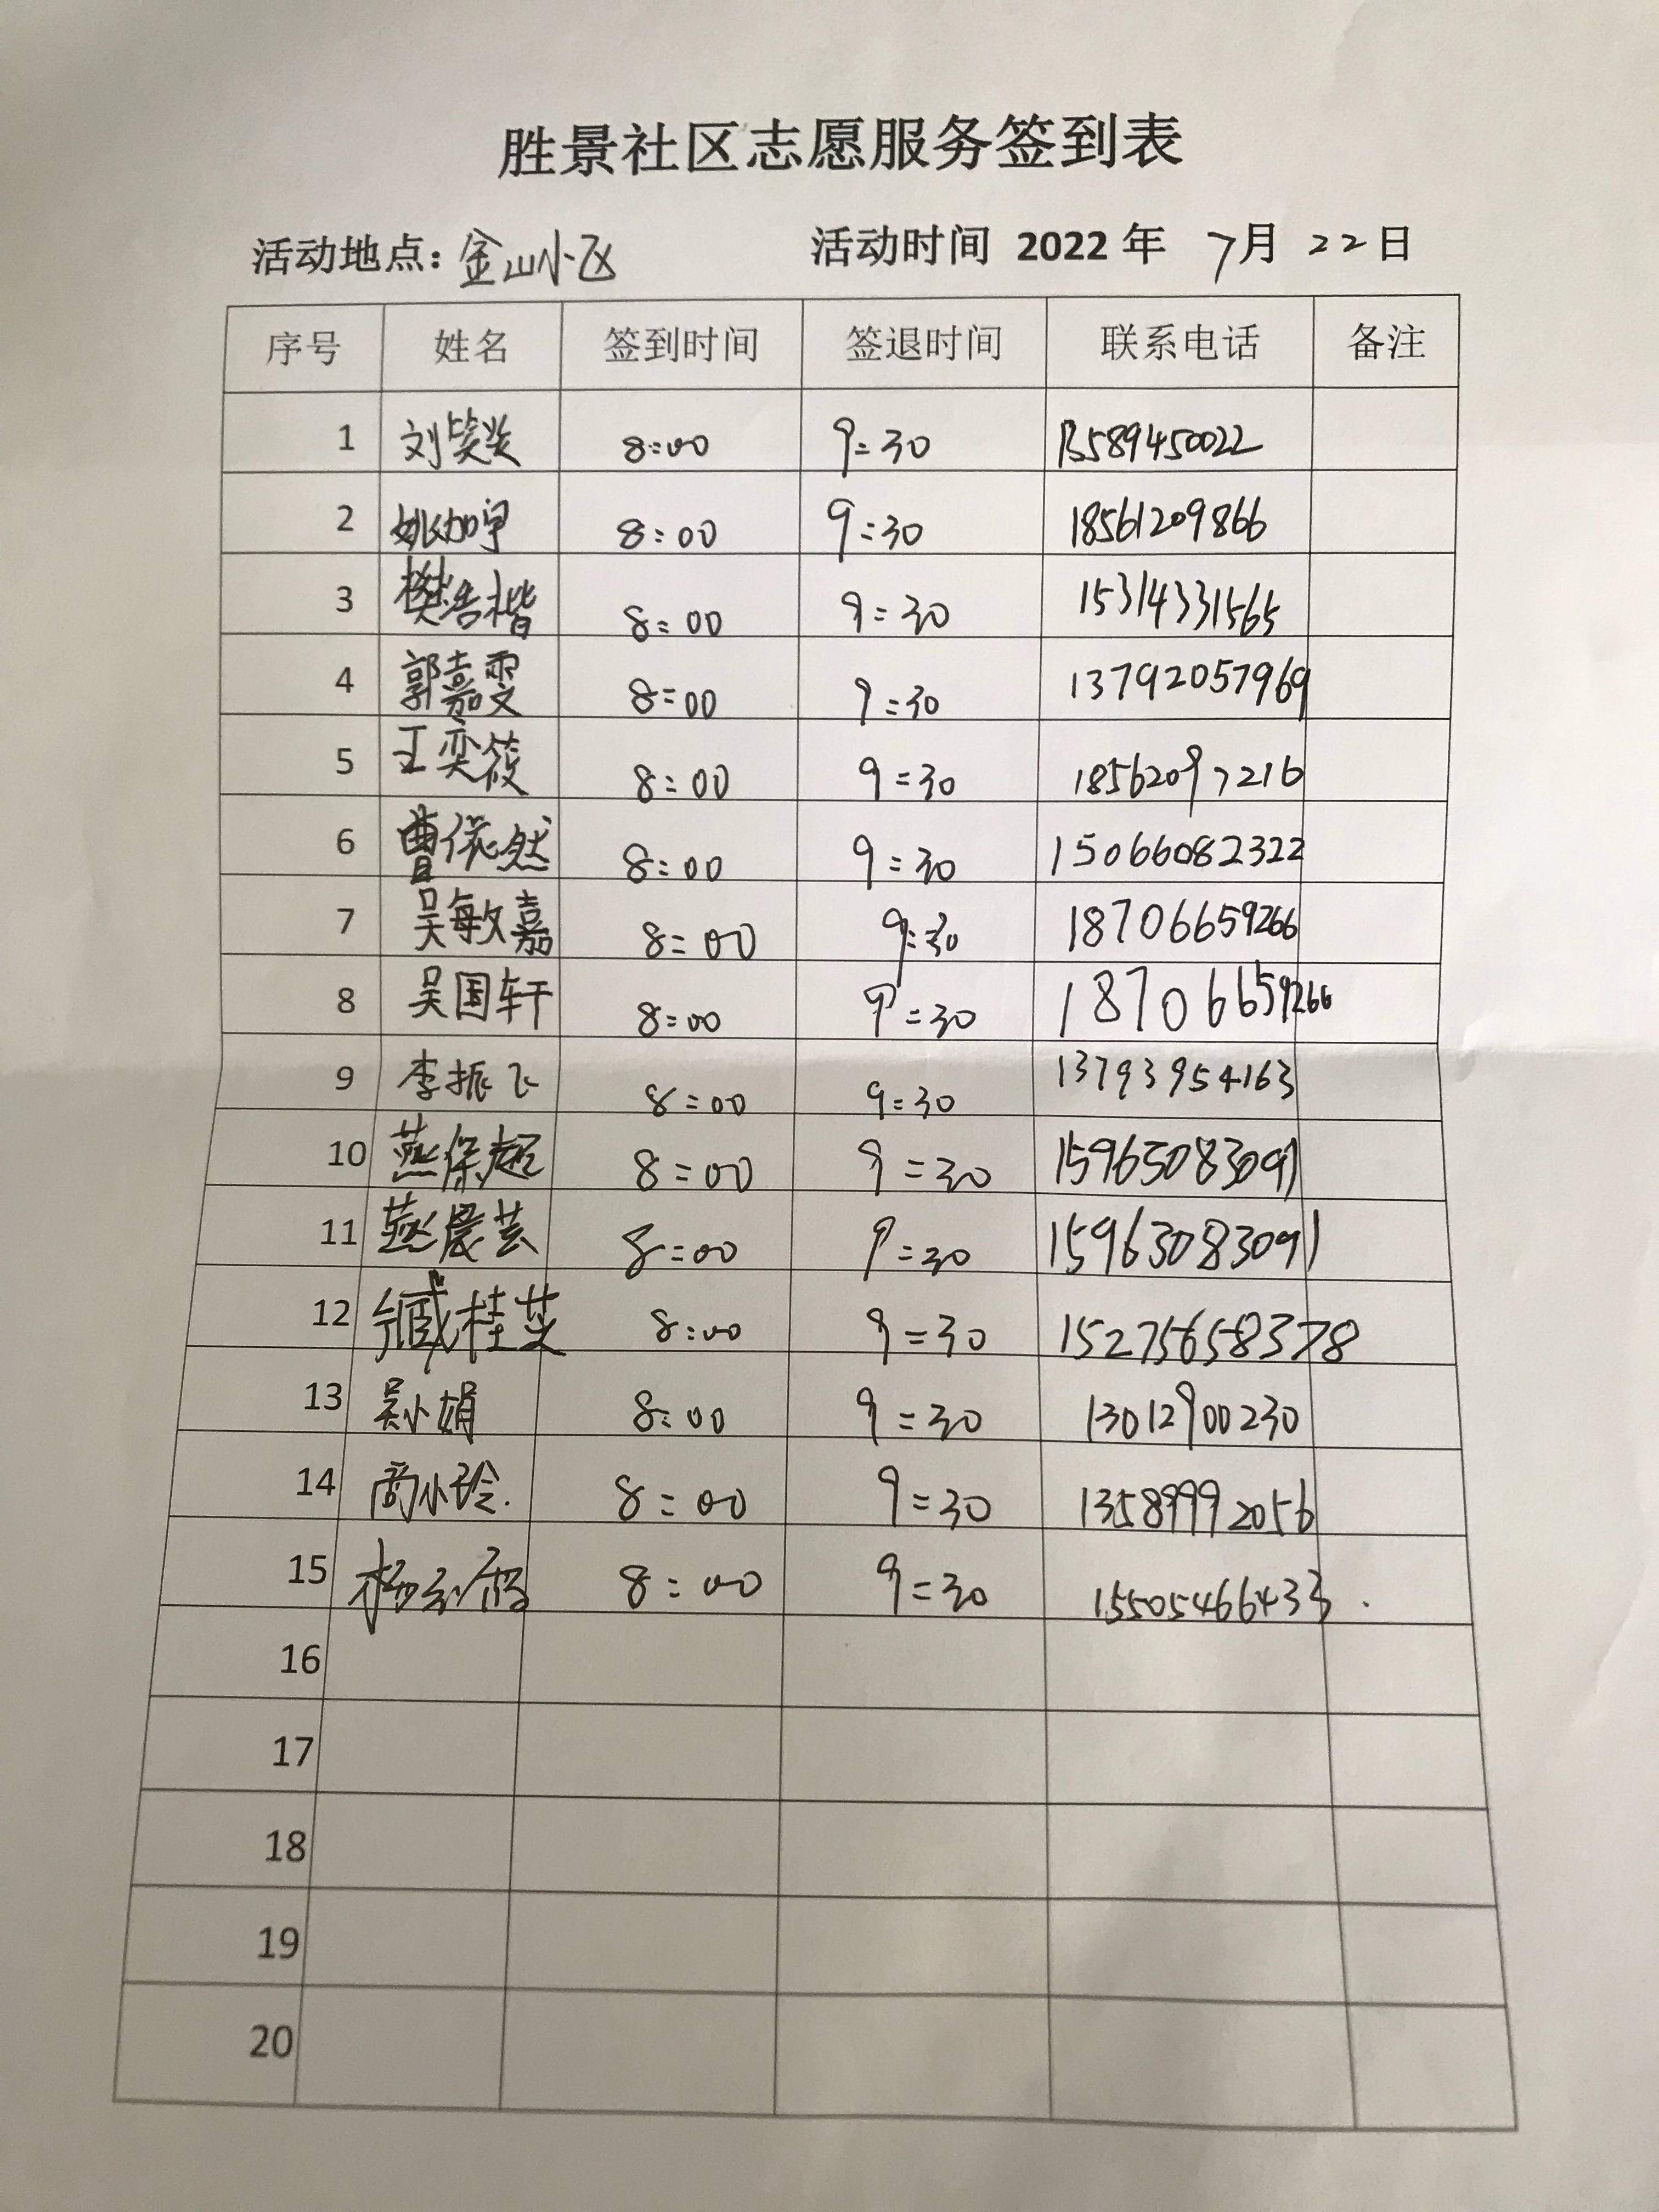 胜景社区志愿服务签到表
活动地点：金山小区 活动时间 2022 年 7月 22日
序号 姓名 签到时间 签退时间 联系电话 备注
1 刘笑 8:00 9:30 13589450022
2 姚加宇 8:00 9:30 18561209866
3 樊浩楷 8:00 9:30 15314331565
4 郭嘉雯 8:00 9:30 13792057969
5 王奕筱 8:00 9:30 18562097216
6 曹依然 8:00 9:30 15066082322
7 吴敏嘉 8:00 9:30 18706659266
8 吴国轩 8:00 9:30 18706659266
9 李振飞 8:00 9:30 13793954163
10 燕保超 8:00 9:30 15963083091
11 燕晨芸 8:00 9:30 15963083091
12 臧桂芝 8:00 9:30 15275658378
13 吴小娟 8:00 9:30 13012900230
14 商小玲. 8:00 9:30 13589992056
15 杨 8:00 9:30 15505466433.
16
17
18
19
20